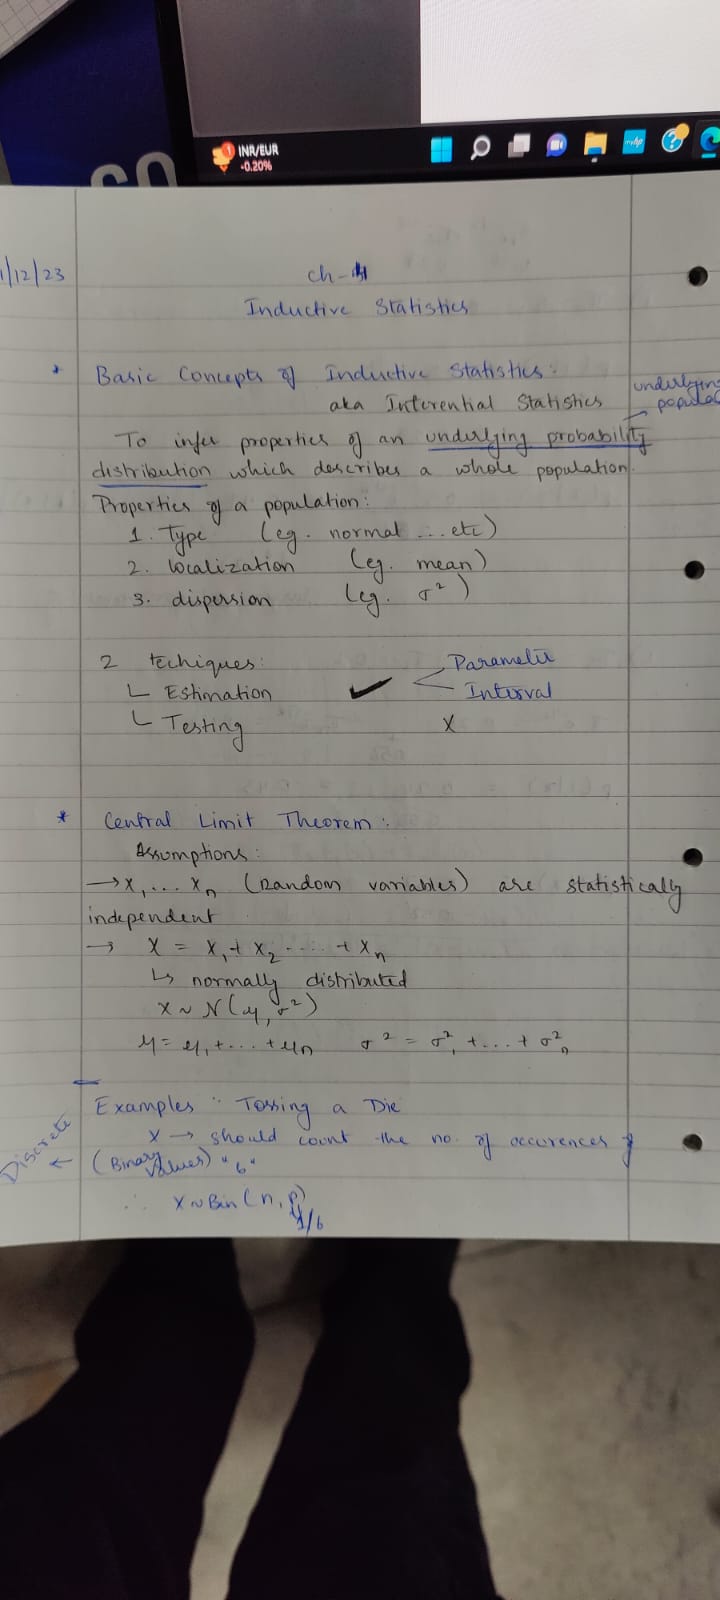 INR/EUR
-0.20%
1/12/23
Ch-
Inductive Statistics
* Basic Concepts of Inductive Statistics:
aka Inferential Statistics
underlying
popula
To infer properties of an underlying probability
distribution which describes a whole population.
Properties of a population:
1. Type (eg. normal ... etc)
2. localization (eg. mean)
3. dispersion (eg. σ²)
2 techiques:
Estimation ✓ Parametic
Interval
Testing X
* Central Limit Theorem:
Assumptions:
→ X₁, ... Xn (Random variables) are statistically
independent
→ X = X₁ + X₂ ..... + Xn
↳ normally distributed
X ~ N(μ, σ²)
μ = μ₁ + ... + μn σ² = σ₁² + ... + σn²
Examples: Tossing a Die
X → should count the no. of occurences of
(Binary values) "6"
Discrete ←
∴ X ~ Bin(n, p)
1/6